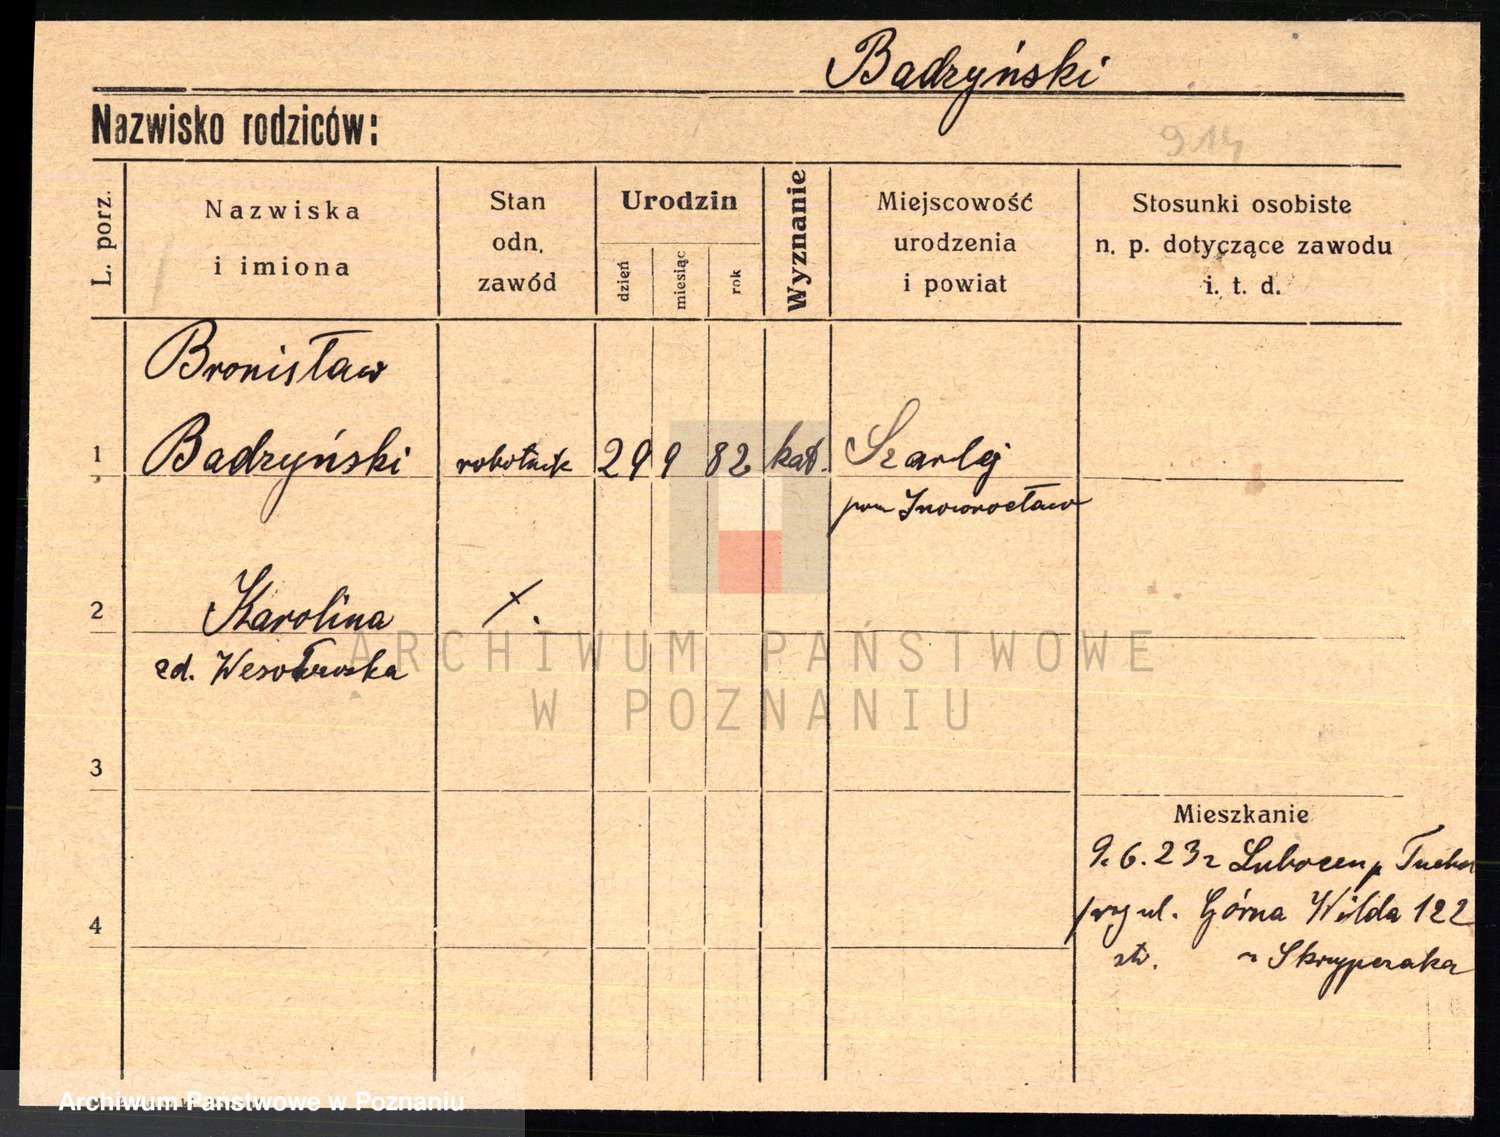 Badzyński
Nazwisko rodziców:
914
L. porz.
Nazwiska
i imiona
Stan
odn.
zawód
Urodzin
dzień
miesiąc
rok
Wyznanie
Miejscowość
urodzenia
i powiat
Stosunki osobiste
n. p. dotyczące zawodu
i. t. d.
Bronisław
1 Badzyński robotnik 29 9 82 kat. Szarlej
pow Inowrocław
2 Karolina
zd. Wesołowska
3
Mieszkanie
9. 6. 23 z p Tuchola
przy ul. Górna Wilda 122
4
Skrzypczaka
ARCHIWUM PAŃSTWOWE
W POZNANIU
Archiwum Państwowe w Poznaniu